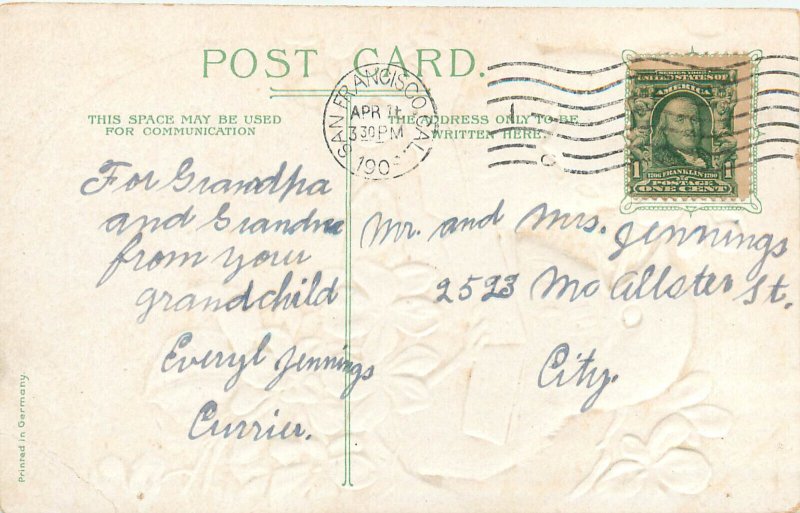 POST CARD.
THIS SPACE MAY BE USED
FOR COMMUNICATION
THE ADDRESS ONLY TO BE
WRITTEN HERE.
SAN FRANCISCO, CAL.
APR
3 30 PM
190
SERIES 1902
UNITED STATES OF
AMERICA
1 1
1706 FRANKLIN 1790
POSTAGE
ONE CENT
For Grandpa
and Grandma
from your
grandchild
Everyl Jennings
Currier.
Mr. and Mrs. Jennings
2523 McAllster St.
City.
Printed in Germany.